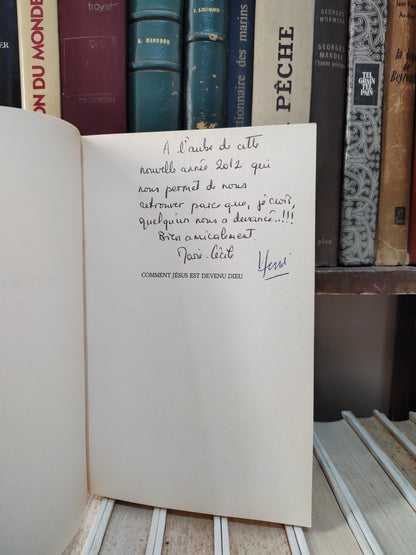 ON DU MONDE
troyer
R. MANDROU
dictionnaire des marins
PÊCHE
GEORGES WORMSER
GEORGES MANDEL
TEL GRAIN TEL PAIN
A l'aube de cette
nouvelle année 2012 qui
nous permet de nous
retrouver parce que, je crois,
quelqu'un nous a devancé..!!!
Bien amicalement.
Marie-Cécile
COMMENT JÉSUS EST DEVENU DIEU